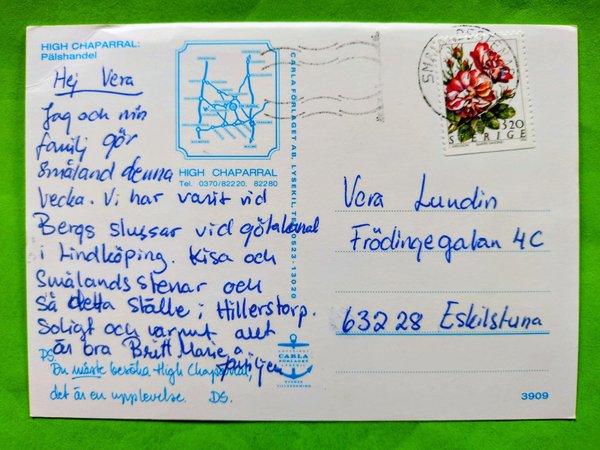 HIGH CHAPARRAL:
Pälshandel
Hej Vera
Jag och min
familj gör
Småland denna
vecka. Vi har varit vid
Bergs slussar vid götakanal
i Lindköping. Kisa och
Smålands stenar och
Så detta ställe i Hillerstorp.
Soligt och varmt allt
är bra Britt Marie, o
familjen
DS.
Du måste besöka High Chaparral,
det är en upplevelse. DS.
HIGH CHAPARRAL
Tel. 0370/82220, 82280
CARLA FÖRLAGET AB, LYSEKIL, TEL 0523-13020
CARLA
FÖRLAGET
LYSEKIL
SVERIGE
320
Vera Lundin
Frödingegatan 4C
632 28 Eskilstuna
3909